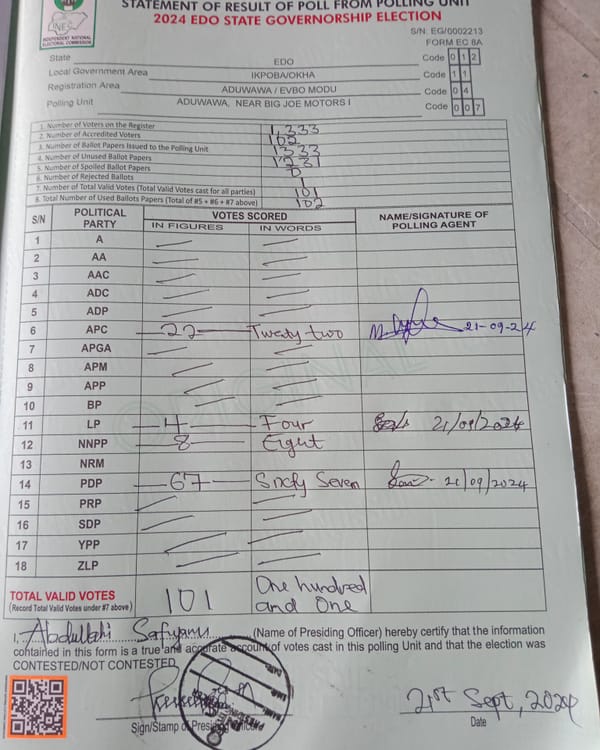 STATEMENT OF RESULT OF POLL FROM POLLING UNIT
2024 EDO STATE GOVERNORSHIP ELECTION
INEC
INDEPENDENT NATIONAL ELECTORAL COMMISSION
S/N: EG/0002213
FORM EC 8A
State EDO Code 0 1 2
Local Government Area IKPOBA/OKHA Code 1 1
Registration Area ADUWAWA / EVBO MODU Code 0 4
Polling Unit ADUWAWA, NEAR BIG JOE MOTORS I Code 0 0 7
1. Number of Voters on the Register 1,333
2. Number of Accredited Voters 102
3. Number of Ballot Papers Issued to the Polling Unit 1333
4. Number of Unused Ballot Papers 1231
5. Number of Spoiled Ballot Papers 0
6. Number of Rejected Ballots 1
7. Number of Total Valid Votes (Total Valid Votes cast for all parties) 101
8. Total Number of Used Ballots Papers (Total of #5 + #6 + #7 above) 102
S/N POLITICAL PARTY VOTES SCORED NAME/SIGNATURE OF POLLING AGENT
IN FIGURES IN WORDS
1 A
2 AA
3 AAC
4 ADC
5 ADP
6 APC 22 Twenty two 21-09-24
7 APGA
8 APM
9 APP
10 BP
11 LP 4 Four 21/09/2024
12 NNPP 8 Eight
13 NRM
14 PDP 67 Sixty Seven 21/09/2024
15 PRP
16 SDP
17 YPP
18 ZLP
TOTAL VALID VOTES 101 One hundred and One
(Record Total Valid Votes under #7 above)
ORIGINAL
I, Abdullahi Safiyanu (Name of Presiding Officer) hereby certify that the information
contained in this form is a true and accurate account of votes cast in this polling Unit and that the election was
CONTESTED/NOT CONTESTED
21st Sept, 2024
Sign/Stamp of Presiding Officer
Date